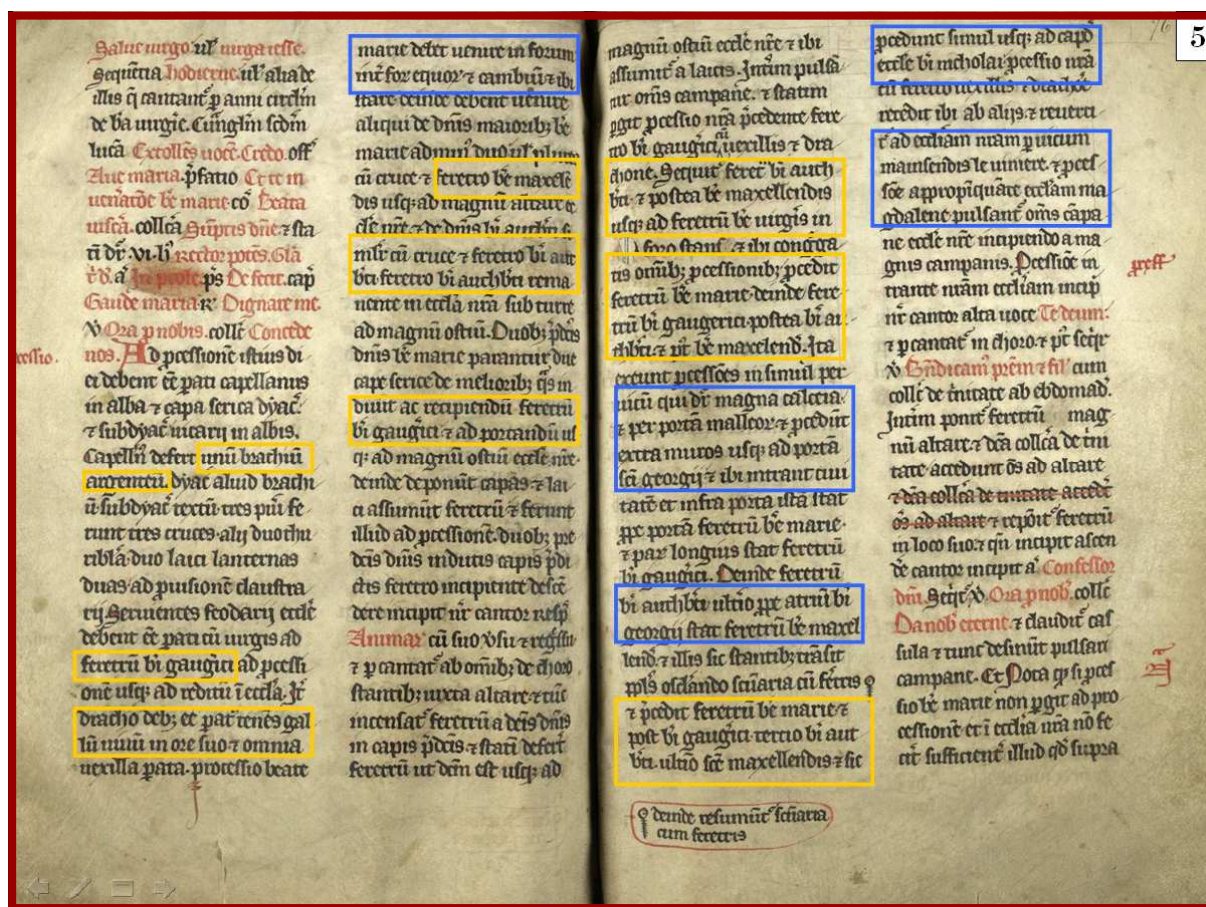 5
76
Salue uirgo. ul' uirga iesse.
Sequētia hodierne. ul' alia de
illis q̄ cantant' p anni circlm̄
de b̄a uirgīe. Euuglm̄ scdm̄
lucā Extollēs uocē. Credo. off'
Aue maria. p̄fatio Et te in
ueñatōe bē marie. cō Beata
uiscā. collcā Sūptis dñe. 7 sta
ti dr̄. vi. h'
Gaude maria. R' Dignare me.
V Ora p nobis. collē Concede
cessio.
nos. Ad pcessionē istius di
ei debent ēē pati capellanus
in alba 7 capa serica dyac̄.
7 subdyac̄ uicarij in albis.
Capell'n̄ defert unū brachiū
argenteū. dyac̄ aliud brachi
ū. subdyac̄ textū. tres pūi fe
runt tres cruces. alij duo thu
ribla. duo laici lanternas
duas. ad puisionē claustra
rij. Seruientes feodarij eccl'ē
debent ēē pati cū uirgis ad
feretrū bī gaug'ici ad pcessi
onē usq; ad reditū ī eccl'a. It'
dracho deb; ēē pat' tenēs gal
lū uiuū in ore suo. 7 omnia
uexilla pata. processio beate
marie debet uenire in forum
int' for equor' 7 cambiū. 7 ibi
stare deinde debent uenire
aliqui de dn̄is maiorib; bē
marie ad min' duo ul' plures
cū cruce 7 feretro bē maxelē
dis usq; ad magnū altare ec
clē nrē 7 de dn̄is bī autb'ti s
mlr̄ cū cruce 7 feretro bī aut
b'ti. feretro bī authb'ti rema
nente in eccl'a nrā sub turre
ad magnū ostiū. Duob; p̄dcīs
dn̄is bē marie parantur due
cape serice de meliorib; q̄s in
duūt ac recipiendū feretrū
bī gaug'ici 7 ad portandū us
q; ad magnū ostiū eccl'ē nrē.
deinde deponūt capas 7 lai
ci assumūt feretrū 7 ferunt
illud ad pcessionē. duob; pre
dcīs dn̄is indutis capis p̄di
ctis feretro incipiente desc̄ē
dere incipit nr̄ cantor resp̄
Animar' cū suo v̄su 7 reg'ssu
7 p cantat' ab om̄ib; de choro
stantib; iuxta altare. 7 tūc
incensat' feretrū a dcīs dn̄is
in capis p̄dcīs 7 statī defert'
feretrū ut dcm̄ est usq; ad
magnū ostiū eccl'ē nrē 7 ibi
assumit' a laicis. Int'im pulsā
tur om̄s campane. 7 statim
pgit pcessio nrā p̄cedente fere
tro bī gaug'ici, cū uexillis 7 dra
chone. Sequit' feret' bī auth
b'ti. 7 postea bē maxellendis
usq; ad feretrū bē uirg'is in
suo stans. 7 ibi congrega
tis om̄ib; pcessionib; p̄cedit
feretrū bē marie. deinde fere
trū bī gaugerici. postea bī au
thb'ti. 7 p't bē maxelend'. Ita
exeunt pcessōes in simul per
uicū qui dr̄ magna calceia.
7 per portā malleor' 7 p̄cedūt
extra muros usq; ad portā
scī georgij 7 ibi intrant ciui
tatē 7 infra porta ista stat
ppe portā feretrū bē marie.
7 par longius stat feretrū
bī gaug'ici. Deinde feretrū
bī authb'ti. ultīo ppe atriū bī
georgij stat feretrū bē maxel
lend'. 7 illis sic stantib; trāsit
ppl's osclando scuaria cū fet'ris
7 p̄cedit feretrū bē marie 7
post bī gaug'ici. tercio bī aut
b'ti. ultīo scē maxellendis 7 sic
deinde resumūt' scuaria
cum feretris
pcedunt simul usq; ad cap̄d
eccl'e bī nicholai. pcessio nrā
cū feretro uexillis 7 drachōe
recedit ibi ab alijs. 7 reuerti
t' ad eccl'iam nrām p uicum
mainsendis le uiniere. 7 pces
sōe appropīquāte eccl'am ma
gdalene pulsant' om̄s cāpa
ne eccl'e nrē incipiendo a ma
gnis campanis. Pcessiōe in
trante nrām eccl'iam incip
nr̄ cantor alta uoce Te deum.
7 p cantat' in choro. 7 p't seqr̄
V Bn̄dicam' prēm 7 fil' cum
coll'c de t'nitate ab ebdomad'.
Int'im ponit' feretrū mag
nū altare. 7 dcā coll'ca de t'ni
tate accedunt ōs ad altare
7 dcā coll'ca de t'nitate accedt'
ōs ad altare 7 repōit' feretrū
in loco suo. 7 qn̄ incipit ascen
de' cantor incipit a' Confessor
dnī. Seqr̄. V. Ora p nob'. coll'c
Da nob' eterne. 7 claudit' cas
sula 7 tunc desinūt pulsari
campane. Et Nota q' si pces
sio bē marie non pgit ad pro
cessionē et ī eccl'ia nrā nō fe
cit' sufficient' illud qd' supra